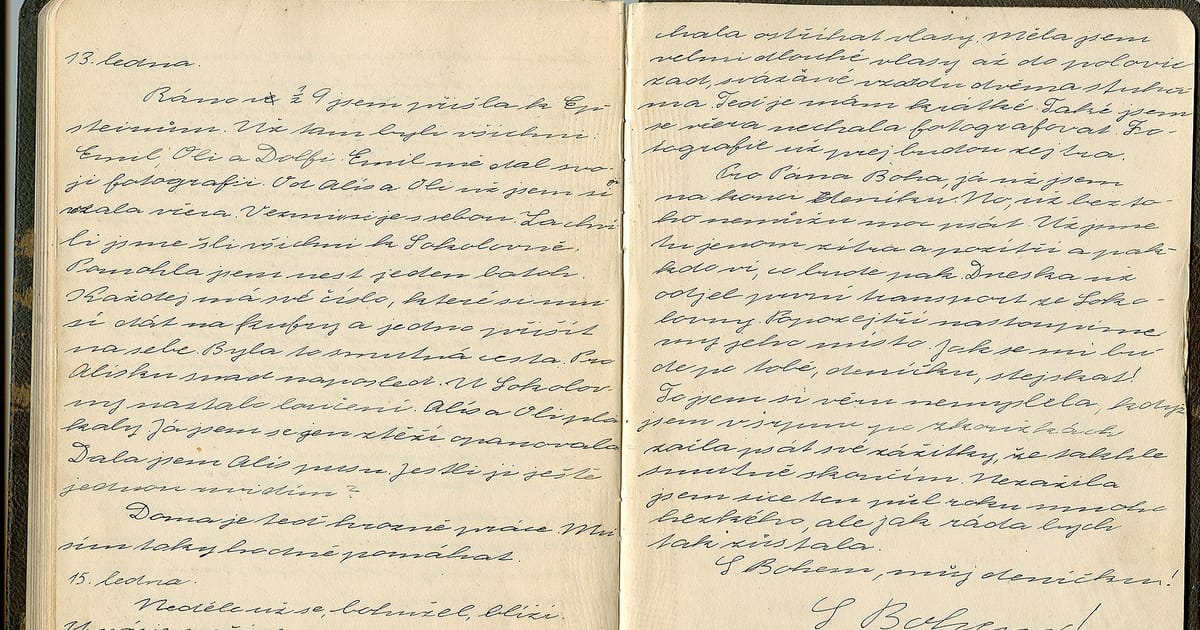 13. ledna.
Ráno v ½ 9 jsem přišla k Ep-
steinům. Už tam byli všichni.
Emil, Oli a Dolfi. Emil mě dal svo-
ji fotografii. Od Alis a Oli už jsem si
vzala včera. Vezmu si je s sebou. Za chví
li jsme šli všichni k Sokolovně.
Pomohla jsem nest jeden batoh.
Každej má své číslo, které si mu
sí dát na kufry a jedno přišít
na sebe. Byla to smutná cesta. Pro
Alisku snad naposled. U Sokolov
ny nastalo loučení. Alis a Oli pla
kaly. Já jsem se jen ztěží opanovala
Dala jsem Alis pusu. Jestli ji ještě
jednou uvidím?
Doma je teď hrozně práce. Mu
sím taky hodně pomáhat.
15. ledna.
Neděle už se, bohužel, blíží.
chala ostříhat vlasy. Měla jsem
velmi dlouhé vlasy až do polovic
zad, svázané vzadu dvěma stuha-
ma. Teď je mám krátké. Také jsem
se včera nechala fotografovat. Fo-
tografie už prej budou zejtra.
Pro Pána Boha, já už jsem
na konci deníku. No, už bez to-
ho nemůžu moc psát. Už jsme
tu jenom zítra a pozítří a pak
kdo ví, co bude pak. Dneska už
odjel první transport ze Soko-
lovny. Popozejtří nastoupíme
my jeho místo. Jak se mi bu-
de po tobě, deníčku, stejskat!
To jsem si věru nemyslela, když
jsem v srpnu po zkouškách
začla psát své zážitky, že takhle
smutně skončím. Nezažila
jsem sice ten půl roku mnoho
hezkého, ale jak ráda bych
tak zůstala.
S Bohem, můj deníčku!
S Bohem!